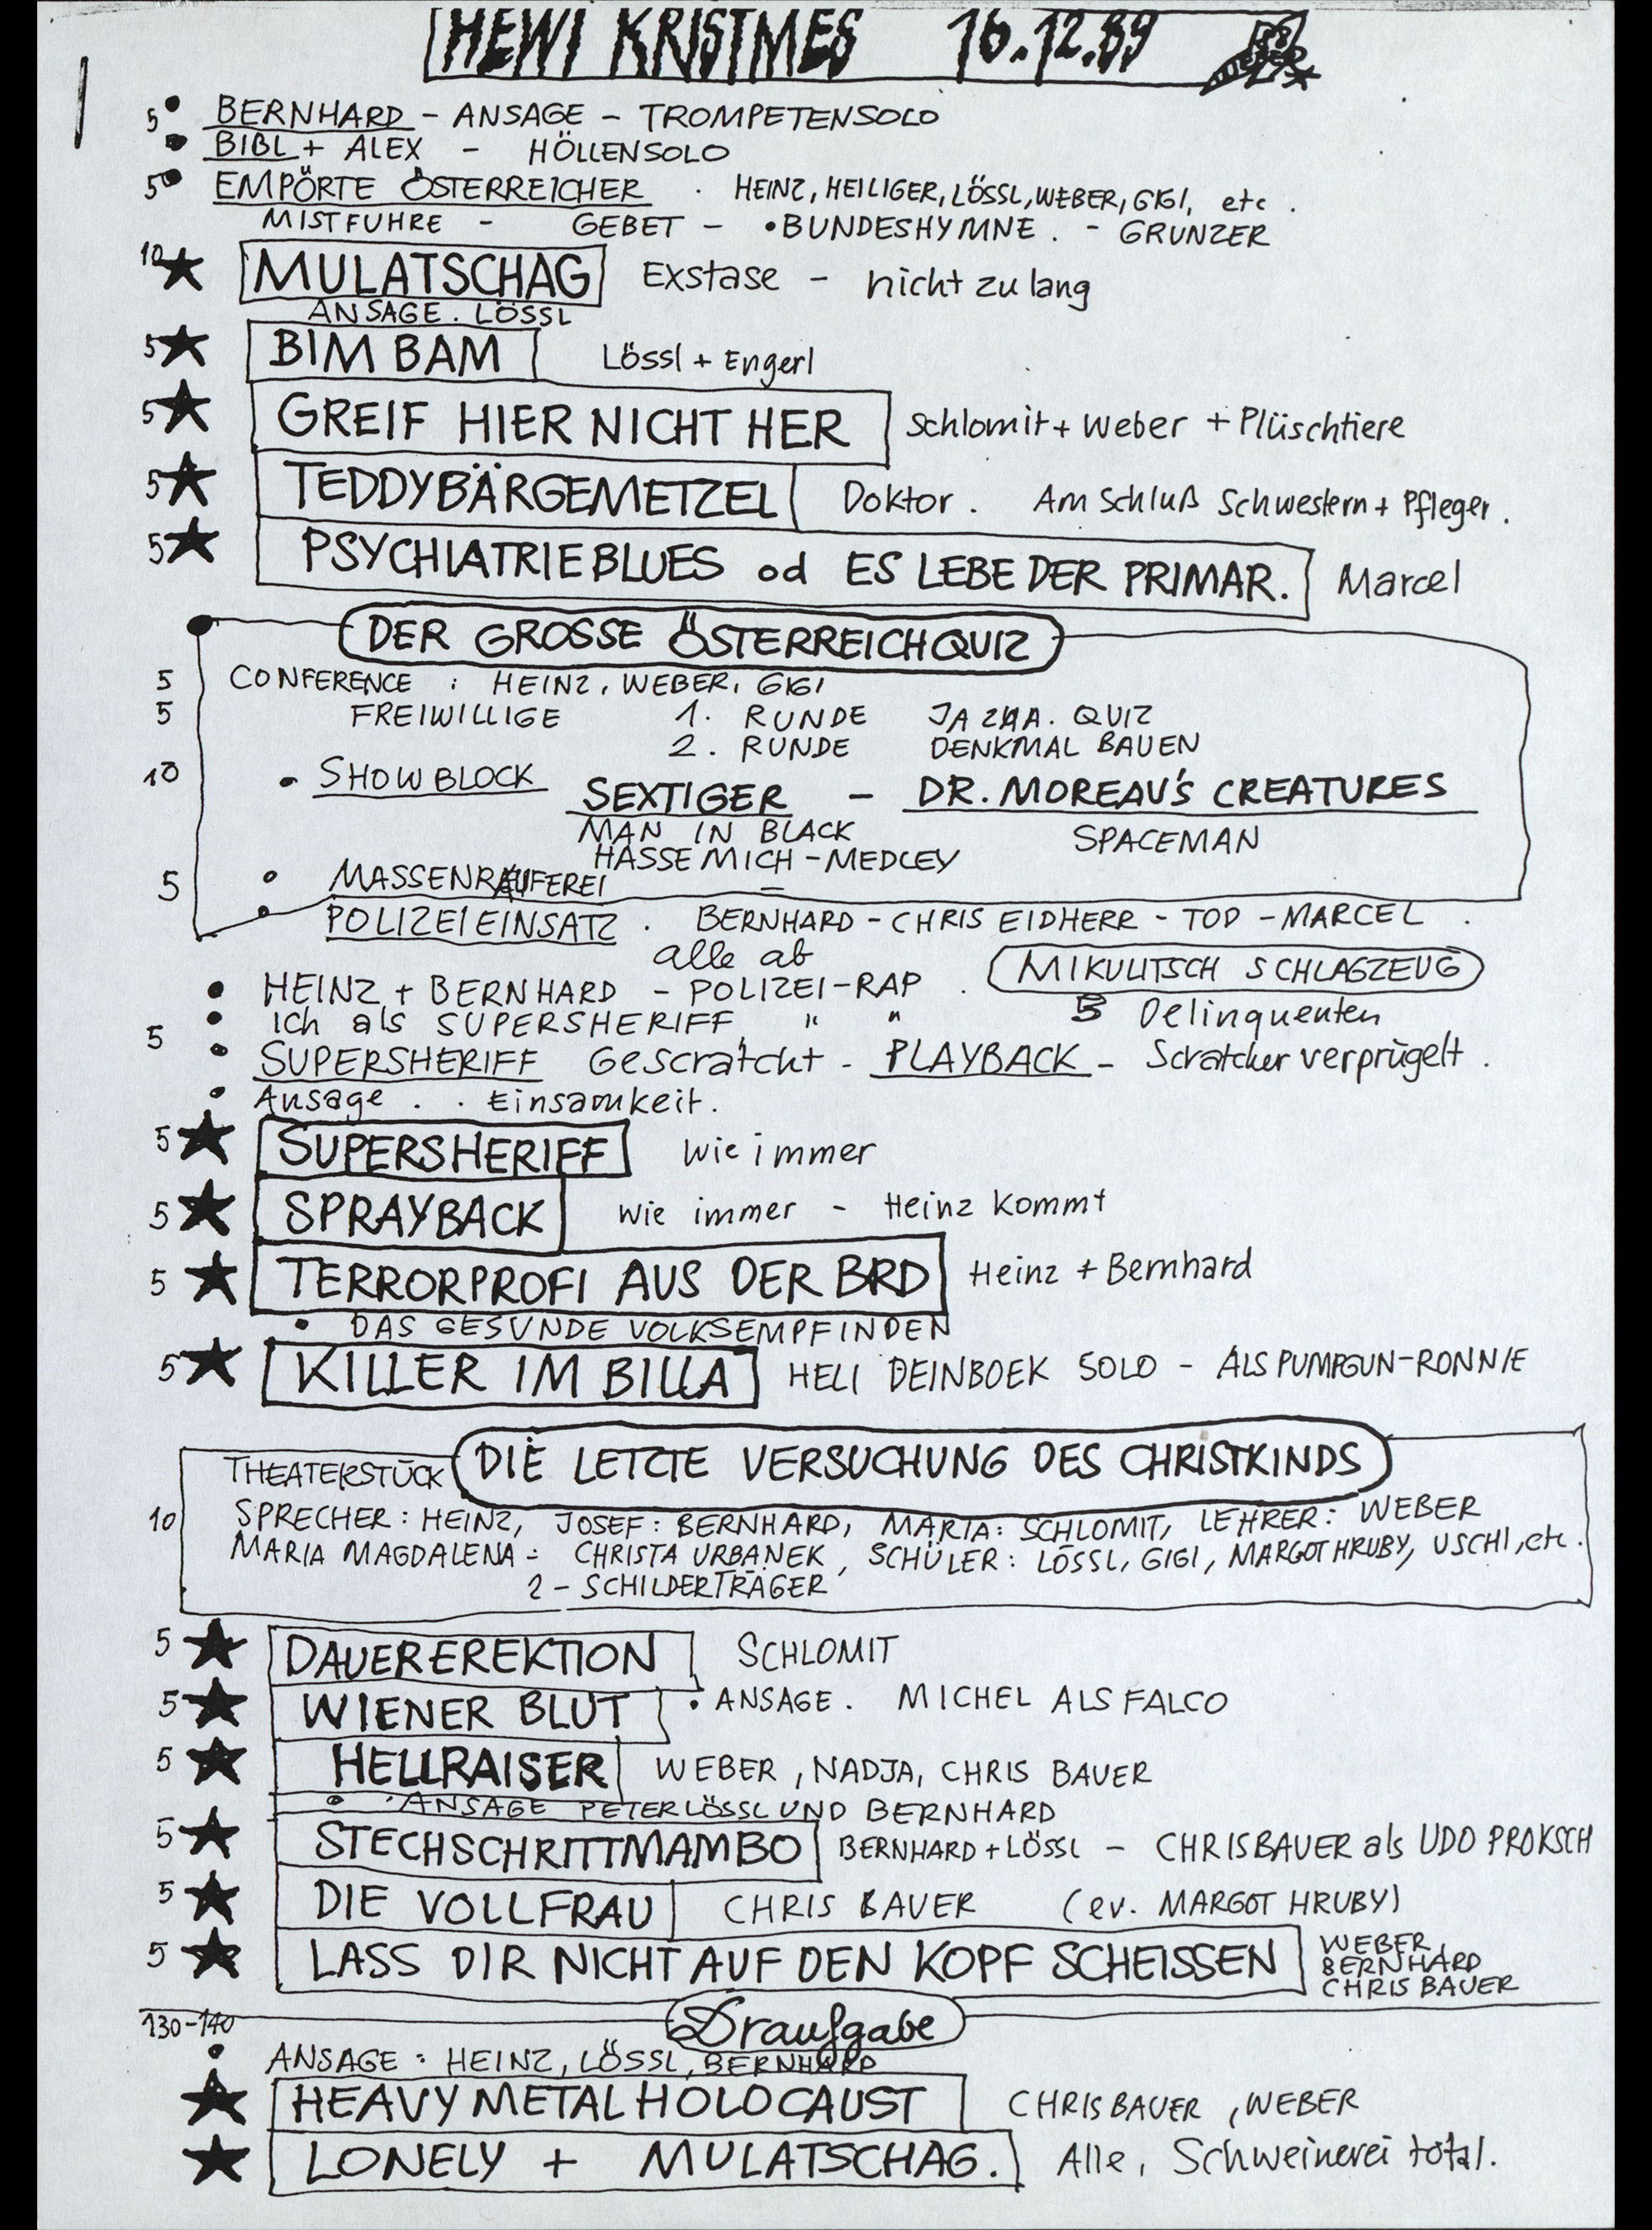 HEWI KRISTMES 16.12.89
5 • BERNHARD - ANSAGE - TROMPETENSOLO
• BIBL + ALEX - HÖLLENSOLO
5 • EMPÖRTE ÖSTERREICHER . HEINZ, HEILIGER, LÖSSL, WEBER, GIGI, etc.
MISTFUHRE - GEBET - • BUNDESHYMNE. - GRUNZER
10 ★ MULATSCHAG Exstase - nicht zu lang
ANSAGE. LÖSSL
5 ★ BIM BAM Lössl + Engerl
5 ★ GREIF HIER NICHT HER Schlomit + Weber + Plüschtiere
5 ★ TEDDYBÄRGEMETZEL Doktor. Am Schluß Schwestern + Pfleger.
5 ★ PSYCHIATRIEBLUES od ES LEBE DER PRIMAR. Marcel
DER GROSSE ÖSTERREICHQUIZ
5 CONFERENCE : HEINZ, WEBER, GIGI
5 FREIWILLIGE 1. RUNDE QUIZ
2. RUNDE DENKMAL BAUEN
10 • SHOWBLOCK SEXTIGER - DR. MOREAU'S CREATURES
MAN IN BLACK SPACEMAN
HASSE MICH - MEDLEY
5 • MASSENRAUFEREI
• POLIZEIEINSATZ . BERNHARD - CHRIS EIDHERR - TOD - MARCEL .
alle ab
• HEINZ + BERNHARD - POLIZEI-RAP . MIKULITSCH SCHLAGZEUG
• Ich als SUPERSHERIFF " " 5 Delinquenten
5 • SUPERSHERIFF Gescratcht - PLAYBACK - Scratcher verprügelt.
• Ansage . . Einsamkeit.
5 ★ SUPERSHERIFF wie immer
5 ★ SPRAYBACK wie immer - Heinz kommt
5 ★ TERRORPROFI AUS DER BRD Heinz + Bernhard
• DAS GESUNDE VOLKSEMPFINDEN
5 ★ KILLER IM BILLA HELI DEINBOEK SOLO - ALS PUMPGUN-RONNIE
THEATERSTÜCK DIE LETZTE VERSUCHUNG DES CHRISTKINDS
10 SPRECHER: HEINZ, JOSEF: BERNHARD, MARIA: SCHLOMIT, LEHRER: WEBER
MARIA MAGDALENA: CHRISTA URBANEK, SCHÜLER: LÖSSL, GIGI, MARGOT HRUBY, USCHI, etc.
2 - SCHILDERTRÄGER
5 ★ DAUEREREKTION SCHLOMIT
5 ★ WIENER BLUT • ANSAGE. MICHEL ALS FALCO
5 ★ HELLRAISER WEBER, NADJA, CHRIS BAUER
• ANSAGE PETER LÖSSL UND BERNHARD
5 ★ STECHSCHRITTMAMBO BERNHARD + LÖSSL - CHRIS BAUER als UDO PROKSCH
5 ★ DIE VOLLFRAU CHRIS BAUER (ev. MARGOT HRUBY)
5 ★ LASS DIR NICHT AUF DEN KOPF SCHEISSEN WEBER,
BERNHARD
CHRIS BAUER
130-140 Draufgabe
• ANSAGE: HEINZ, LÖSSL, BERNHARD
★ HEAVY METAL HOLOCAUST CHRIS BAUER, WEBER
★ LONELY + MULATSCHAG. Alle, Schweinerei total.